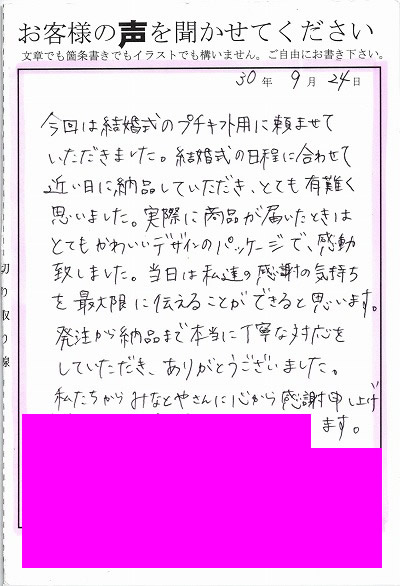 お客様の声を聞かせてください
文章でも箇条書きでもイラストでも構いません。ご自由にお書き下さい。
30年 9月 24日
今回は結婚式のプチギフト用に頼ませて
いただきました。結婚式の日程に合わせて
近い日に納品していただき、とても有難く
思いました。実際に商品が届いたときは
とてもかわいいデザインのパッケージで、感動
致しました。当日は私達の感謝の気持ち
を最大限に伝えることができると思います。
発注から納品まで本当に丁寧な対応を
していただき、ありがとうございました。
私たちからみなとやさんに心から感謝申し上げ
ます。
切り取り線